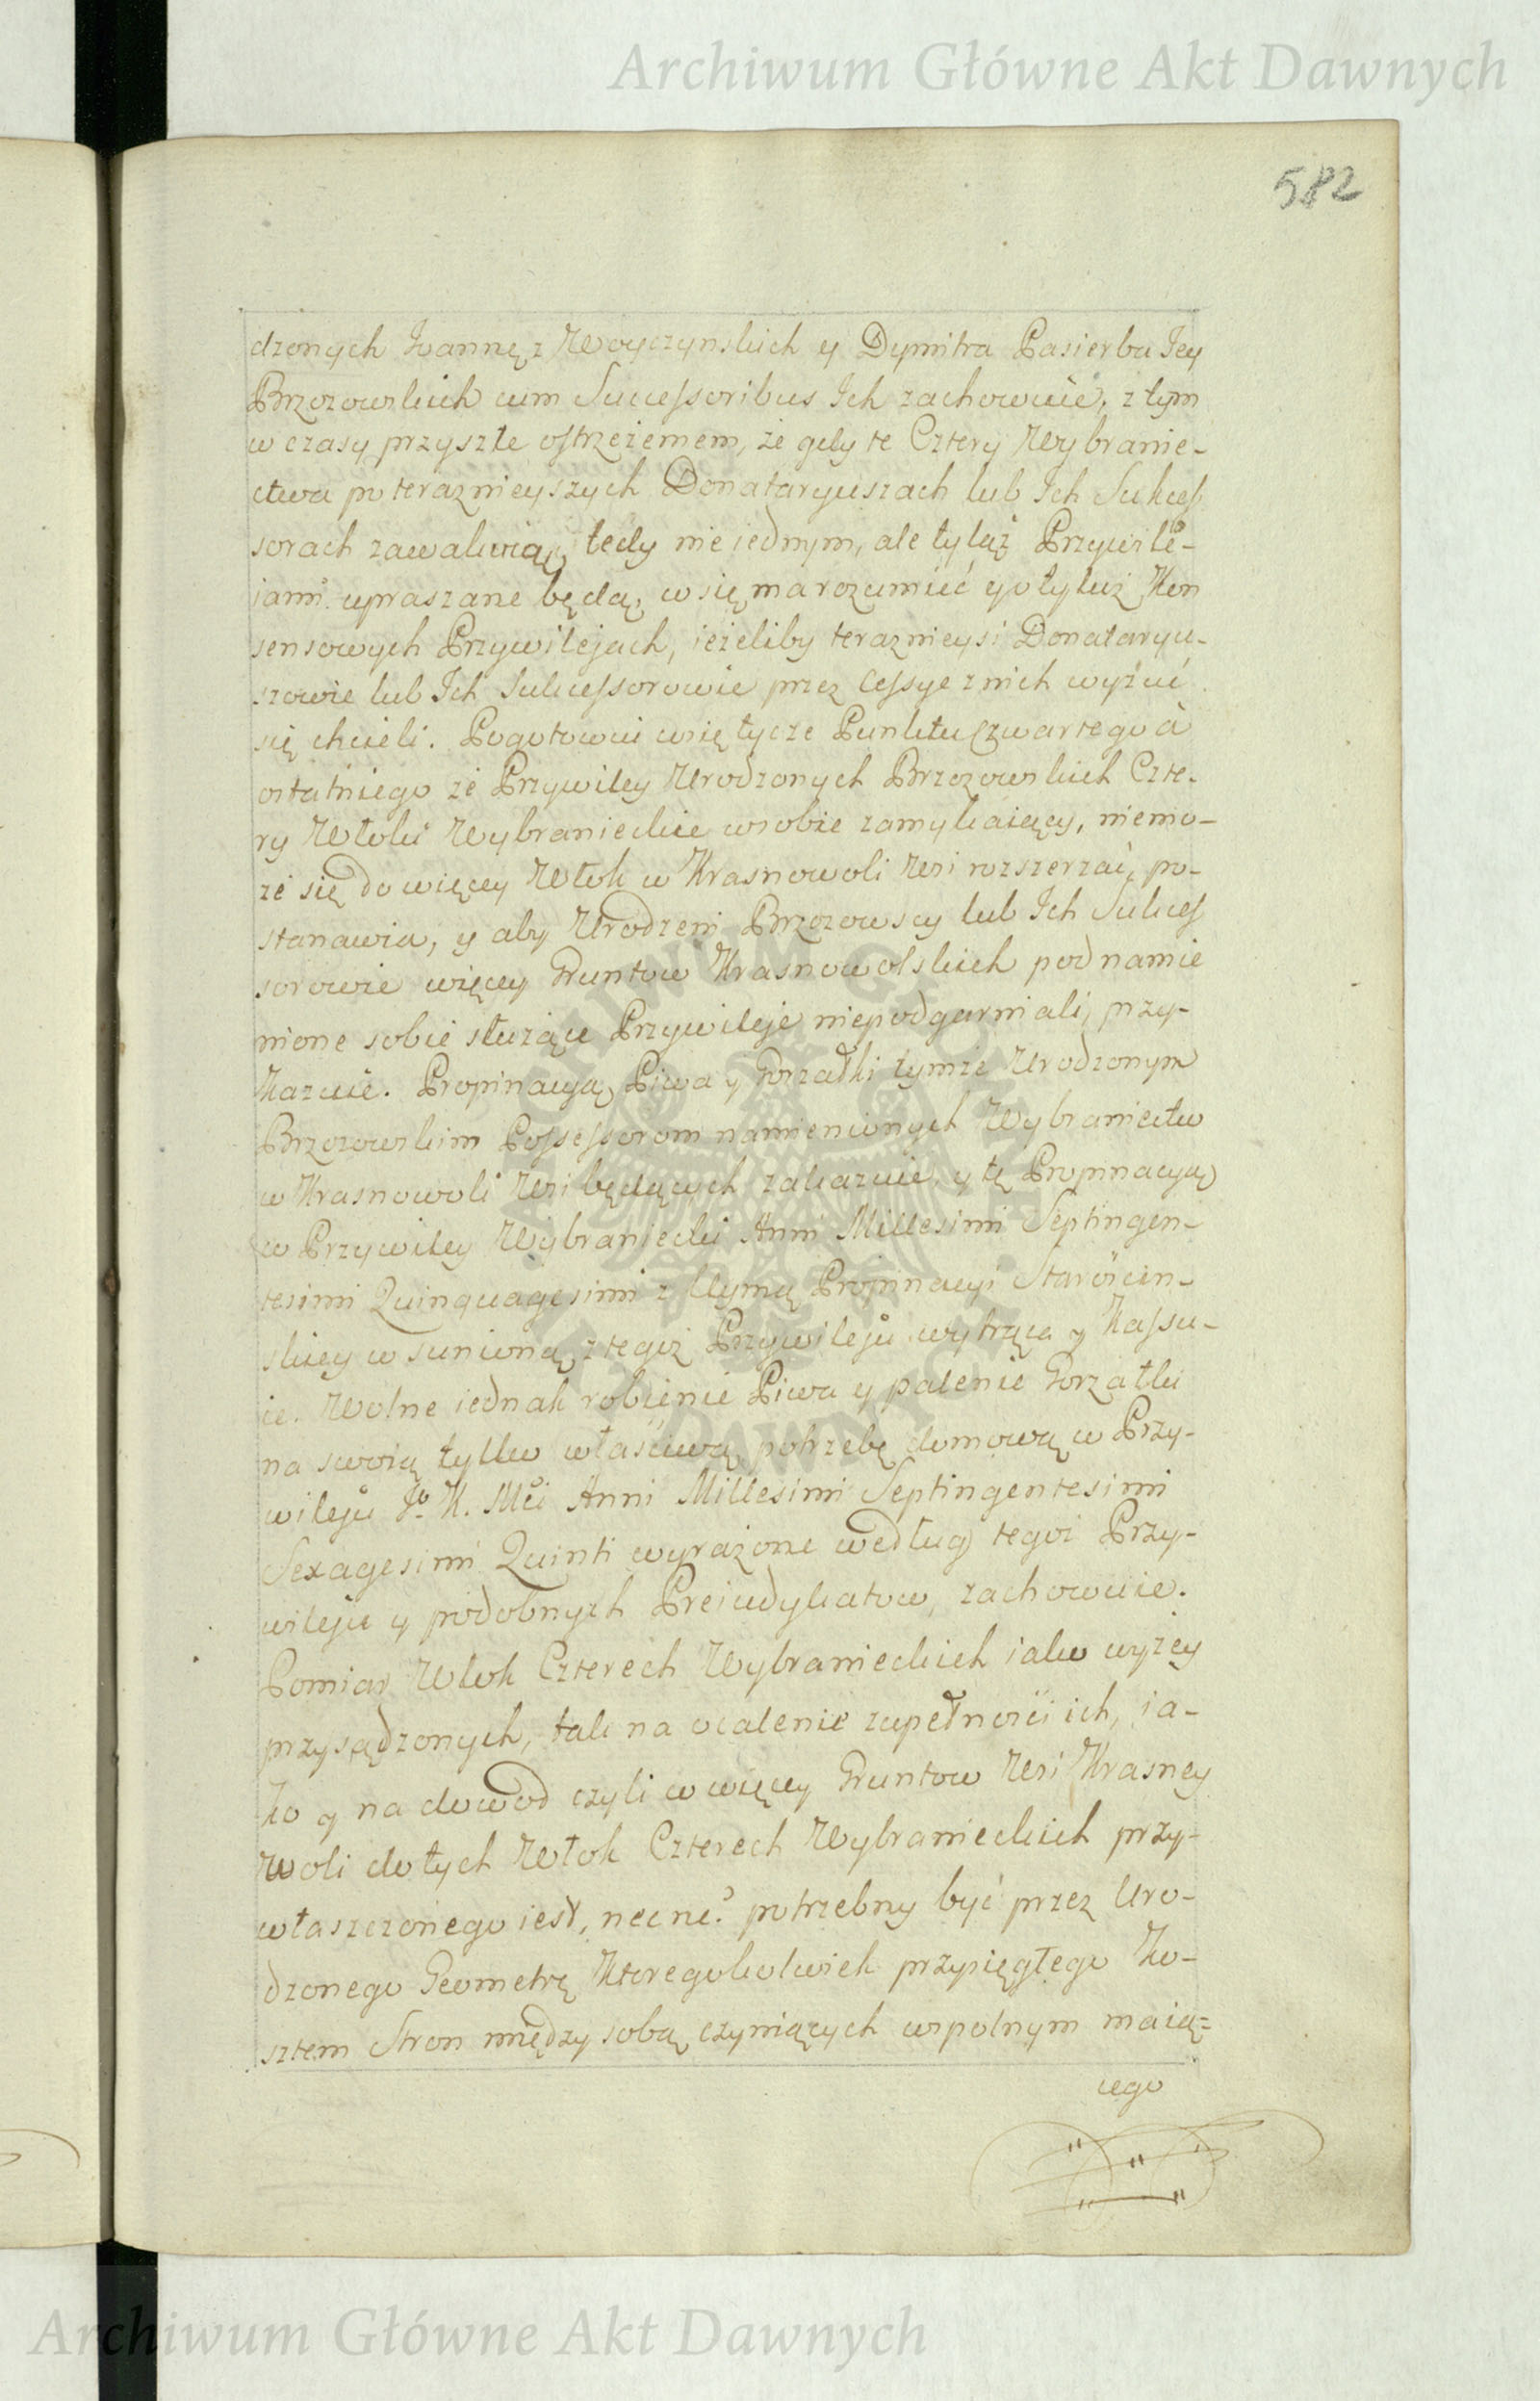 Archiwum Główne Akt Dawnych
582
dzonych Joannę z Woyczynskich y Dymitra Pasierba Jey
Brzozowskich cum Successoribus Ich zachowuie, z tym
w czasy przyszłe ostrzeżeniem, że gdy te Cztery Wybranie-
ctwa po teraznieyszych Donataryuszach lub Ich Sukces
sorach zawakuią, tedy nie iednym, ale tyląż Przywile-
iami upraszane będą, co się ma rozumieć y o tyluż Kon
sensowych Przywilejach, ieżeliby teraznieysi Donataryu-
szowie lub Ich Sukcessorowie przez Cessye z nich wyzuć
się chcieli. Pogotowiu co się tycze Punktu Czwartego à
ostatniego że Przywiley Urodzonych Brzozowskich Czte-
ry Włoki Wybranieckie w sobie zamykaiący, niemo-
że się do więcey Włok w Krasnowoli Wsi rozszerzać, po-
stanawia, y aby Urodzeni Brzozowscy lub Ich Sukces
sorowie więcey Gruntow Krasnowolskich pod namie
nione sobie służące Przywileje niepodgarniali, przy-
kazuie. Propinacyą Piwa y Gorzałki tymże Urodzonym
Brzozowskim Possessorom namienionych Wybraniectw
w Krasnowoli Wsi będących zakazuie, y tę Propinacyą
w Przywiley Wybraniecki Anni Millesimi Septingen-
tesimi Quinquagesimi z Uymą Propinacyi Starościn-
skiey wsunioną, z tegoż Przywileju wytrąca y Kassu-
ie. Wolne iednak robienie Piwa y palenie Gorzałki
na swoią tylko właściwą potrzebę domową w Przy-
wileju J. K. Mci Anni Millesimi Septingentesimi
Sexagesimi Quinti wyrażone według tegoż Przy-
wileju y podobnych Preiudykatow, zachowuie.
Pomiar Włok Czterech Wybranieckich iako wyżey
przysądzonych, tak na ocalenie zupełności ich, ia-
ko y na dowod czyli co więcey Gruntow Wsi Krasney
Woli do tych Włok Czterech Wybranieckich przy-
właszczonego iest, nec ne? potrzebny być przez Uro-
dzonego Geometrę któregokolwiek przysięgłego Ko-
sztem Stron między sobą czyniących wspolnym maią-
cego
Archiwum Główne Akt Dawnych